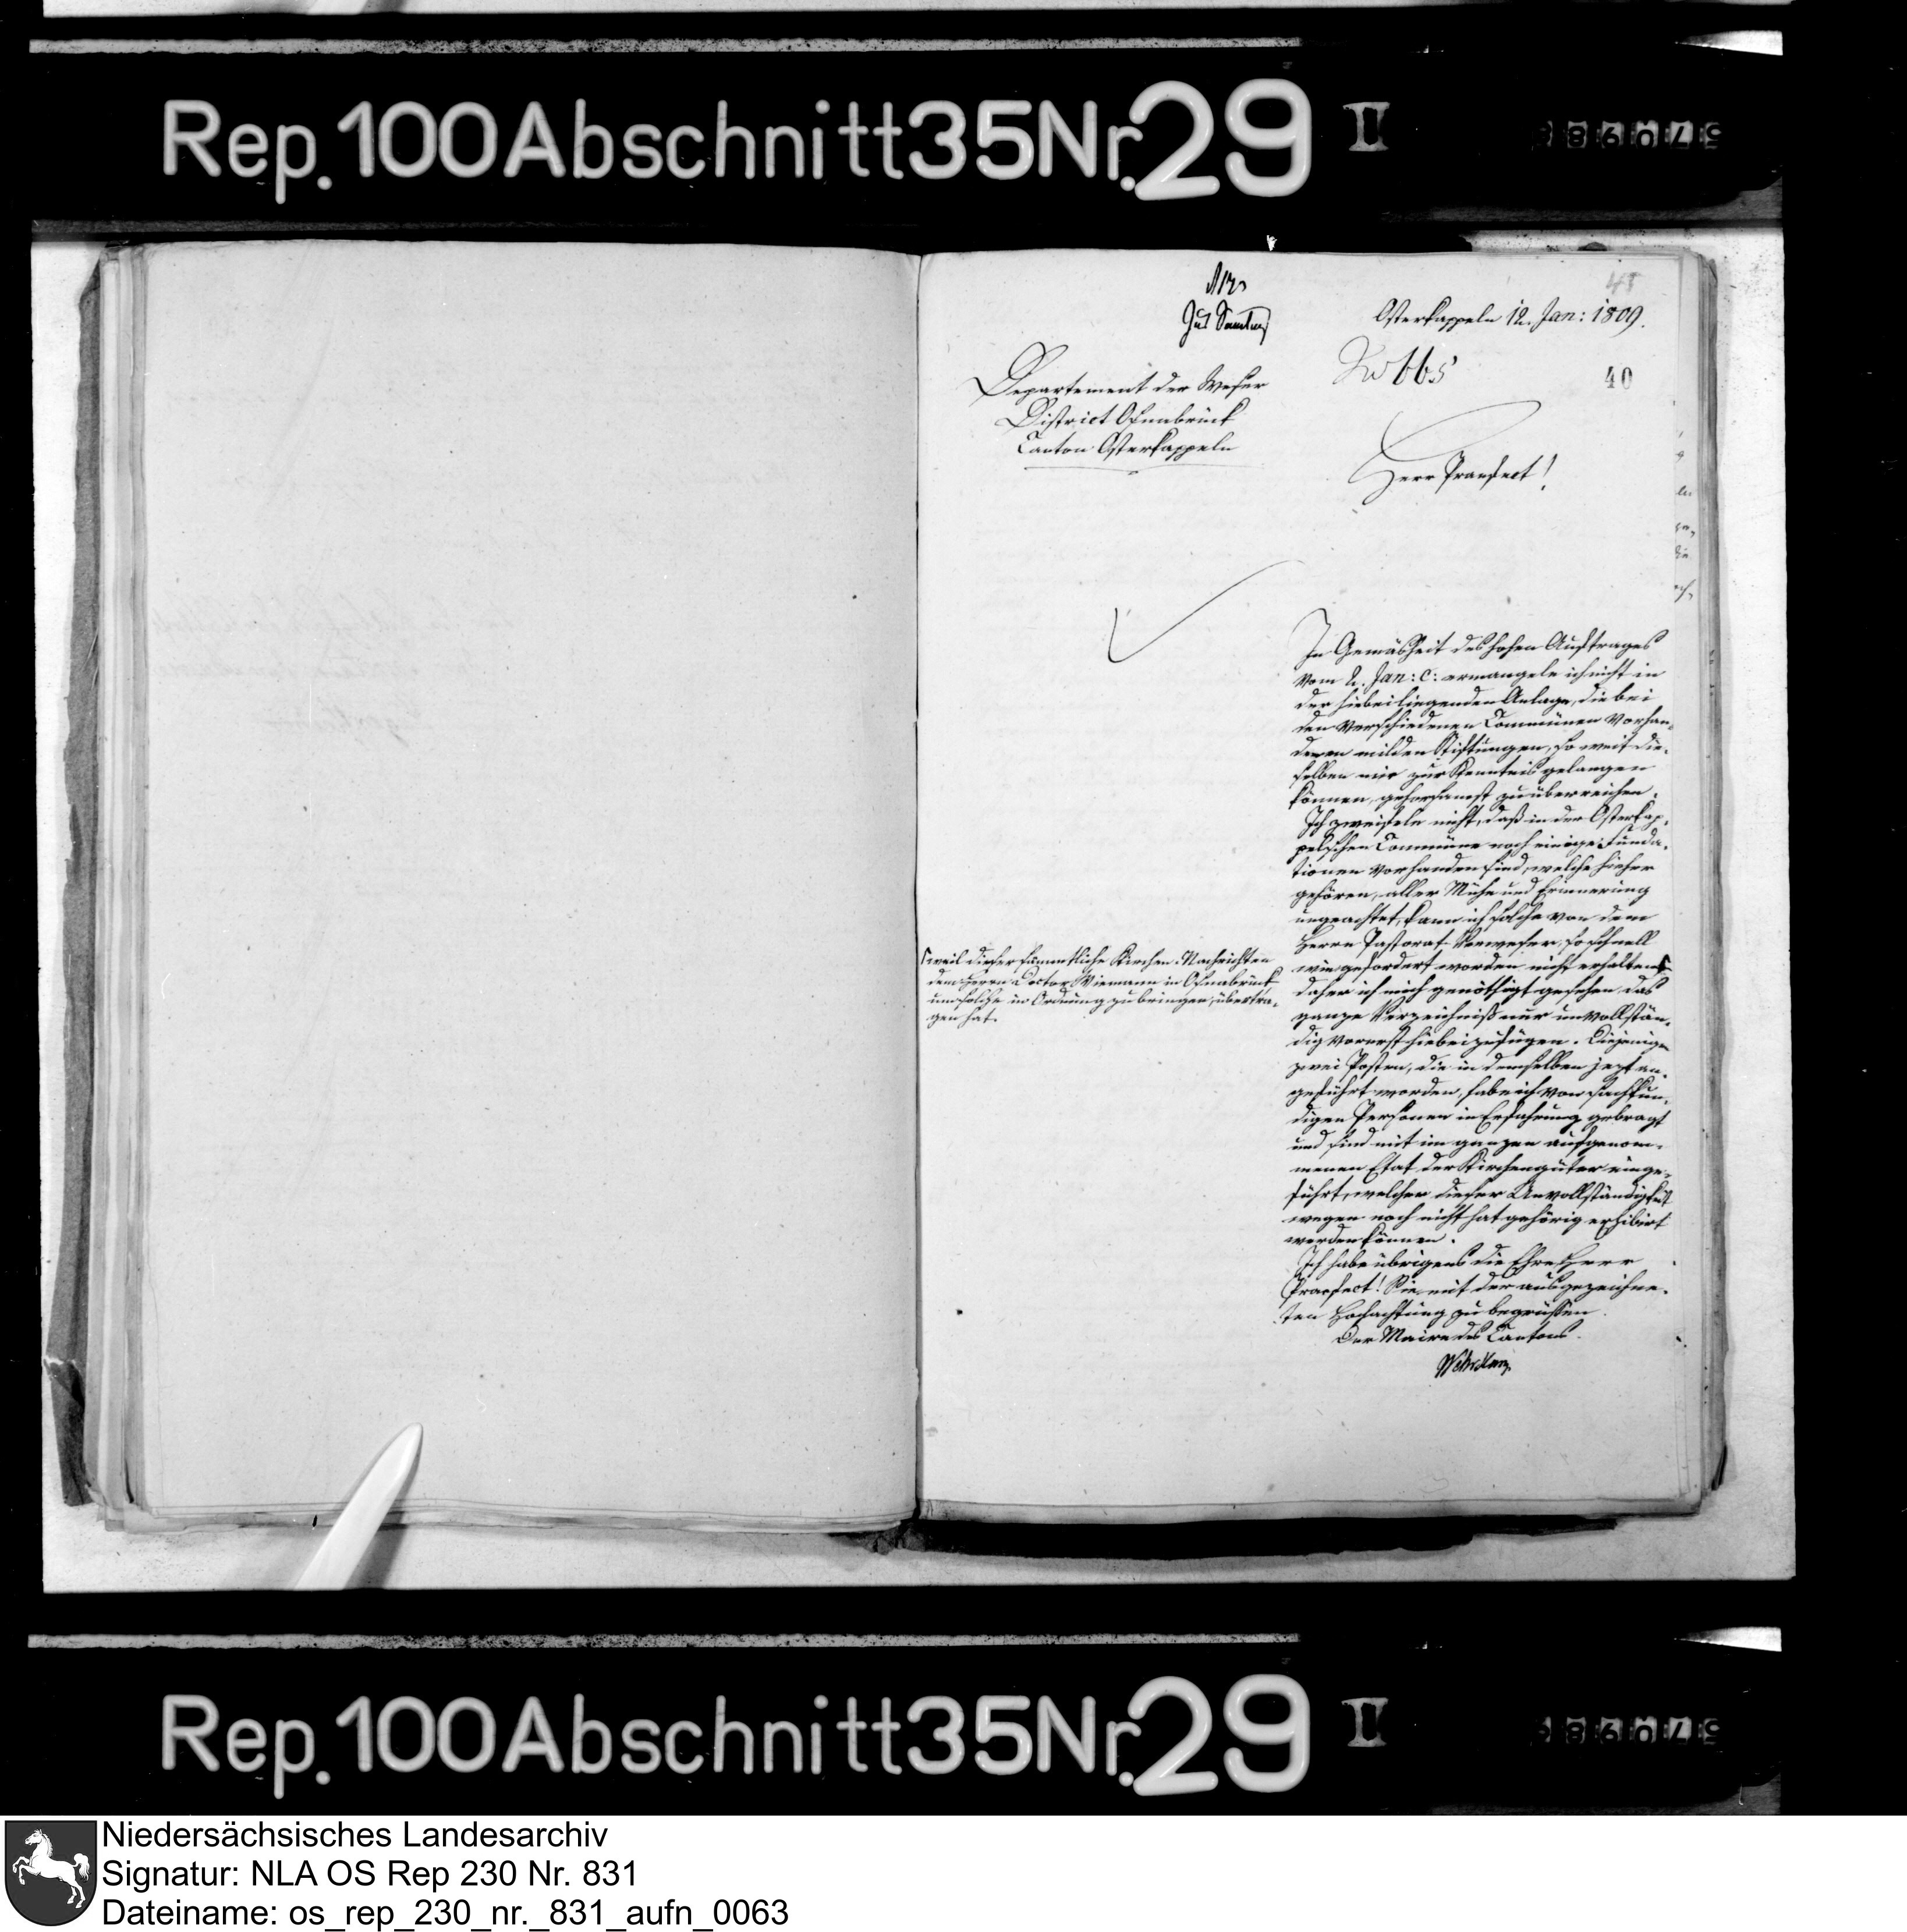 Rep. 100 Abschnitt 35 Nr. 29 II
45
Osterkappeln 12. Jan: 1809.
40
Departement der Weser
District Osnabrück
Canton Osterkappeln
Herr Praefect!
In Gemäsheit des hohen Auftrages
vom 2. Jan: c: ermangele ich nicht in
der hiebei liegenden Anlage, die bei
den verschiedenen Communen vorhan-
denen milden Stiftungen, so weit die-
selben mir zur Kenntnis gelangen
können, gehorsamst zu überreichen.
Ich zweifele nicht, daß in der Osterkap-
pelschen Commune noch einige Funda-
tionen vorhanden sind, welche hieher
gehören, aller Mühe und Erinnerung
ungeachtet, kann ich solche von dem
Herrn Pastorat-Verweser, so schnell
wie gefordert worden nicht erhalten
weil dieser sämmtliche Kirchen-Nachrichten
dem Herrn Doctor Niemann in Osnabrück
um solche in Ordnung zu bringen, übertra-
gen hat.
daher ich mich genöthigt gesehen das
ganze Verzeichniß nur unvollstän-
dig vorerst hiebeizufügen. Diejenigen
zwei Posten, die in demselben jezt an-
geführt worden, habe ich von sachkun-
digen Personen in Erfahrung gebragt
und sind mit im ganzen aufgenom-
menen Etat der Kirchengüter einge-
führt, welcher dieser Unvollständigkeit
wegen noch nicht hat gehörig exhibirt
werden können.
Ich habe übrigens die Ehre Herr
Praefect! Sie mit der ausgezeichne-
ten Hochachtung zu begrüssen.
Der Maire des Cantons
Rep. 100 Abschnitt 35 Nr. 29 II
Niedersächsisches Landesarchiv
Signatur: NLA OS Rep 230 Nr. 831
Dateiname: os_rep_230_nr._831_aufn_0063